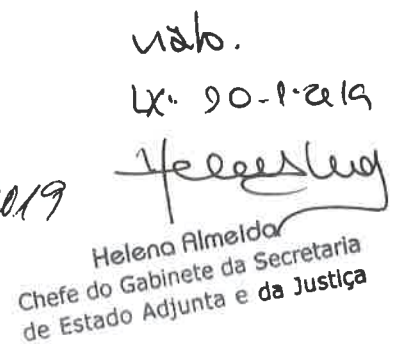 visto.
LX.
019
Helena Almeida
Chefe do Gabinete da Secretaria
de Estado Adjunta e da Justiça